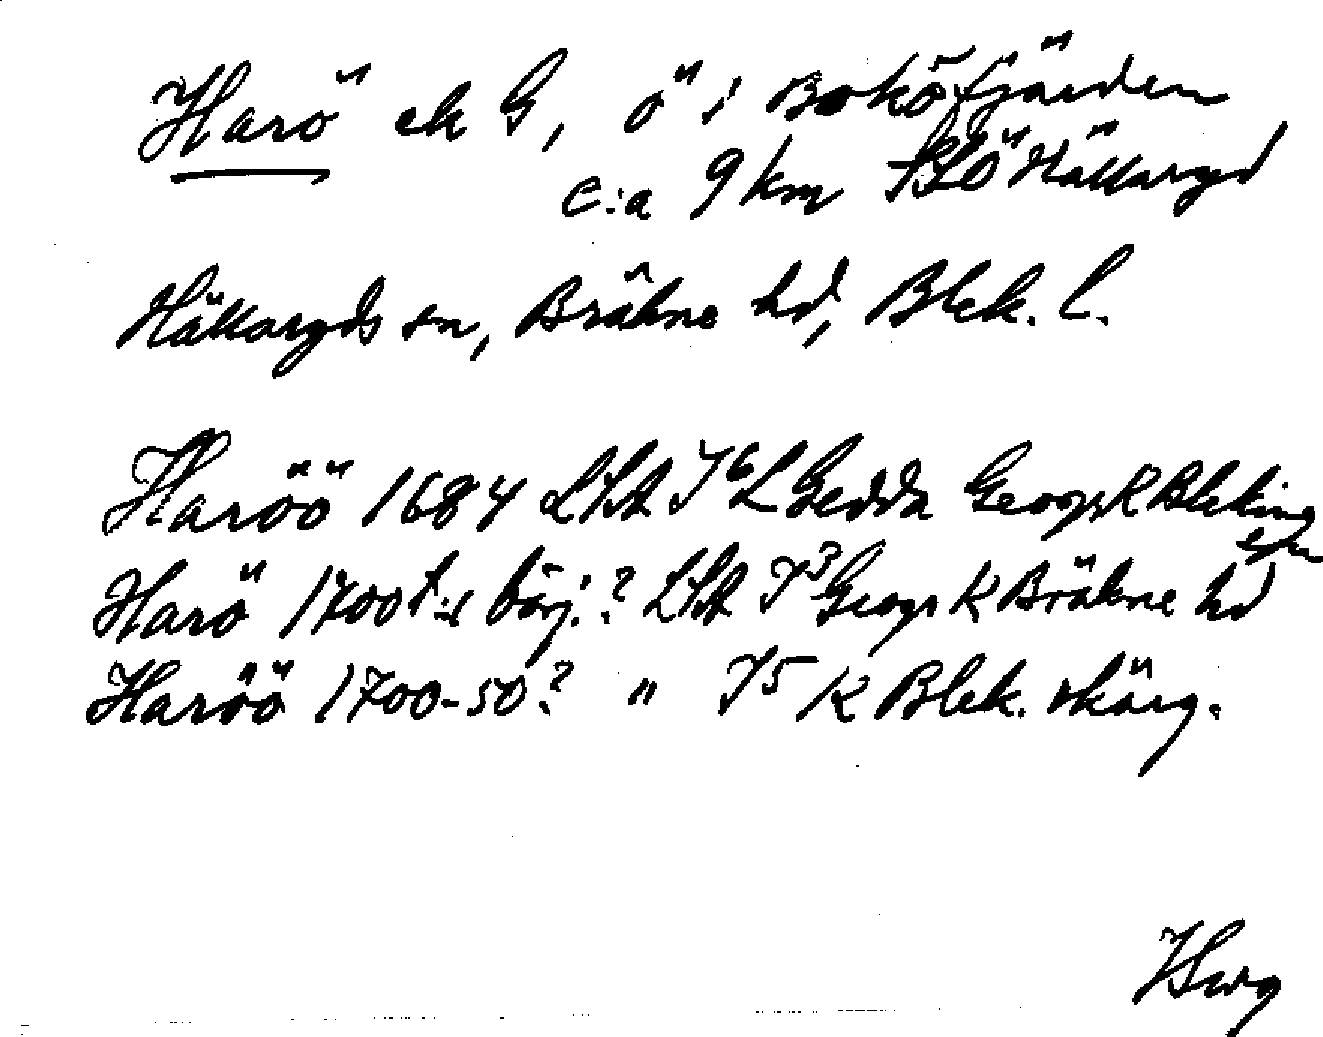 Harö ek G, ö i Boköfjärden
c:a 9 km SSÖ Hällaryd
Hällaryds sn, Bräkne hd, Blek. l.
Haröö 1684 LSA I 6 L Gedda Geogr K Bleking
Harö 1700 t:s börj.? LSA I 3 Geogr K Bräkne hd
Haröö 1700-50? " I 5 K Blek. skärg.